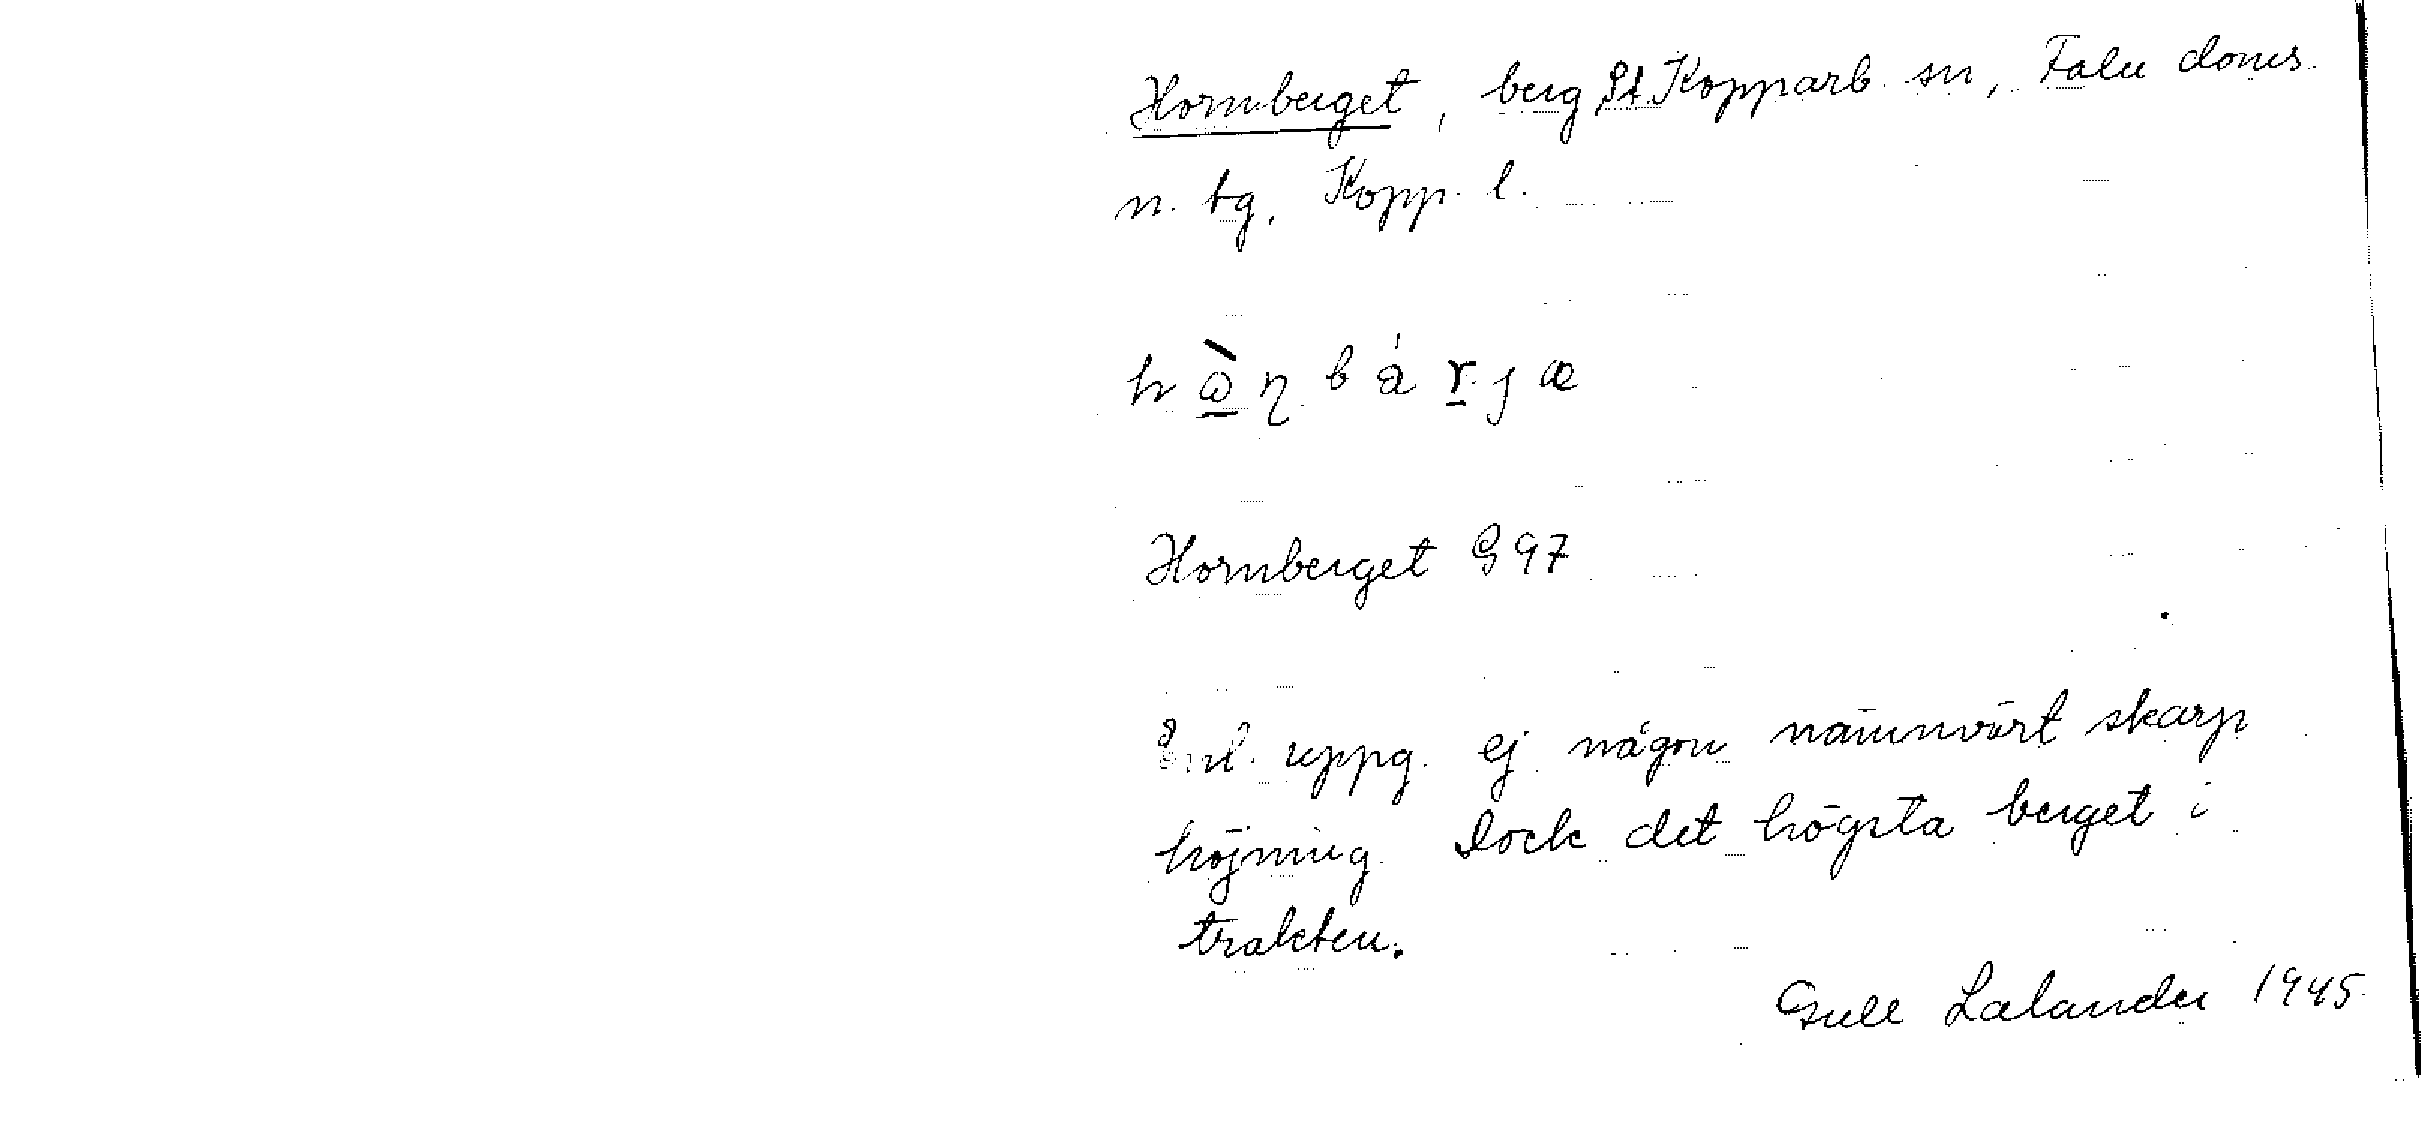 Hornberget, berg St. Kopparb. sn, Falu doms.
n. tg, Kopp. l.
Hornberget G 97
Enl. uppg. ej någon nämnvärt skarp
höjning. Dock det högsta berget i
trakten.
Gull Lalander 1945